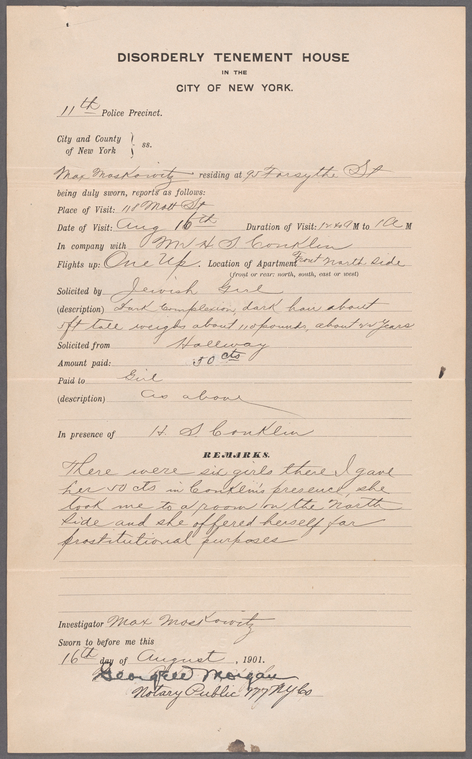 DISORDERLY TENEMENT HOUSE
IN THE
CITY OF NEW YORK.
11th Police Precinct.
City and County
of New York } ss.
Max Moskowitz residing at 95 Forsythe St
being duly sworn, reports as follows:
Place of Visit: 118 Mott St
Date of Visit: Aug 16th Duration of Visit: 12.40 A M to 1 A M
In company with Mr H S Conklin
Flights up: One Up. Location of Apartment Front North Side
(front or rear: north, south, east or west)
Solicited by Jewish Girl
(description) Dark Complexion, dark hair about
5ft tall weighs about 110 pounds, about 22 years
Solicited from Hallway
Amount paid: 50 cts
Paid to Girl
(description) as above
In presence of H. S Conklin
REMARKS.
There were six girls there I gave
her 50 cts in Conklin's presence, she
took me to a room on the North
Side and she offered herself for
prostitutional purposes
Investigator Max Moskowitz
Sworn to before me this
16th day of August, 1901.
George E Morgan
Notary Public NY Co